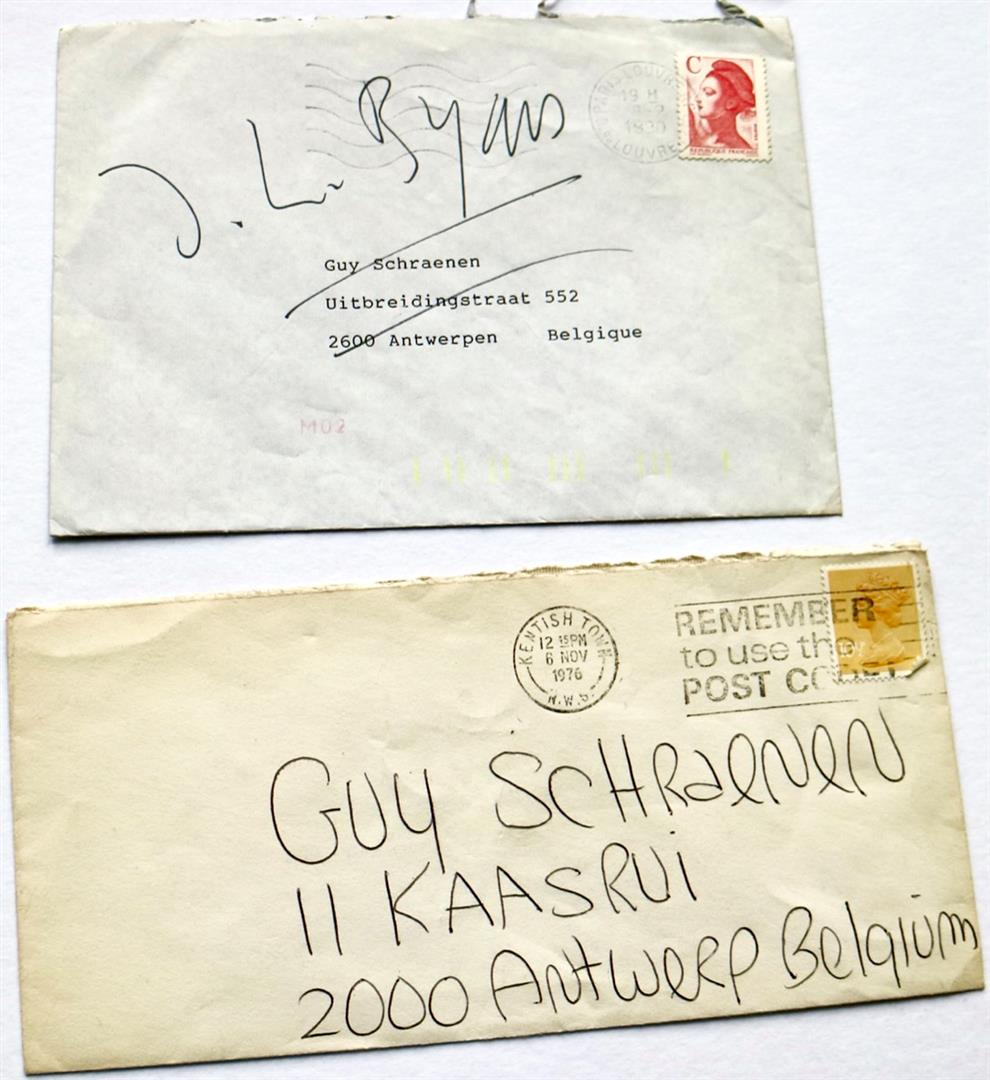 J. L. Byars
C
PARIS LOUVRE
19 H
1990
LOUVRE
REPUBLIQUE FRANÇAISE
Guy Schraenen
Uitbreidingstraat 552
2600 Antwerpen Belgique
M02
KENTISH TOWN
12 15PM
6 NOV
1976
N.W.5.
REMEMBER
to use the
POST CODE
GUY SCHRAENEN
11 KAASRUI
2000 Antwerp Belgium